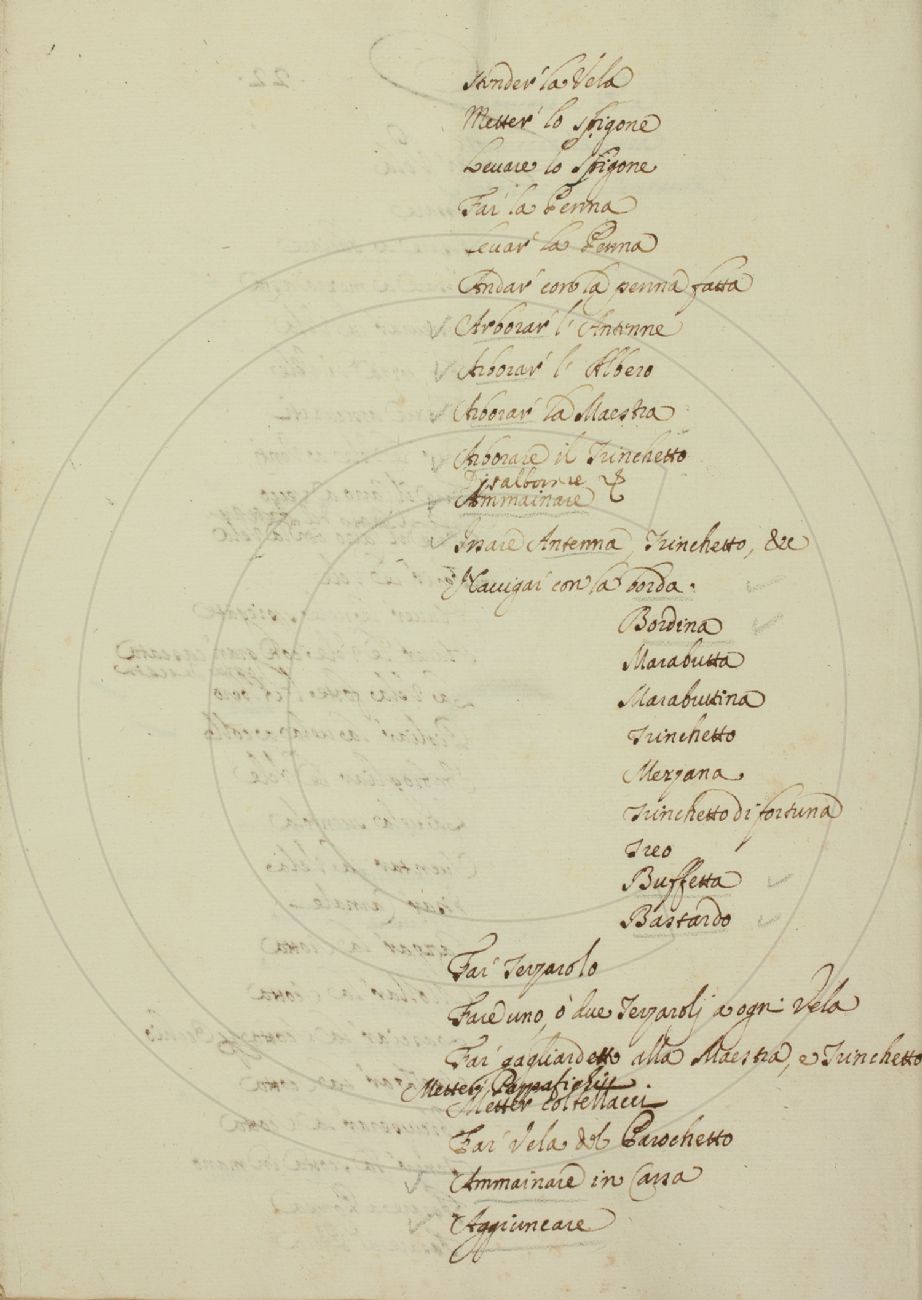 Stender' la Vela
Metter' lo Spigone
Levare lo Spigone
Far' la Penna
Levar' la Penna
Andar' con la penna fatta
Arborar' l' Antenne
Arborar' l' Albero
Arborar' la Maestra
Arborare il Trinchetto
Disalborare &
Ammainare
Issare Antenna, Trinchetto, &c
Navigar con la borda.
Bordina
Marabutta
Marabuttina
Trinchetto
Mezzana
Trinchetto di fortuna
Treo
Buffetta
Bastardo
Far' Terzarolo
Fare uno, ò due Terzarolj a ogni Vela
Far' gagliardetto alla Maestra, e Trinchetto
Metter' Pappafichi
Metter Coltellacci
Far' Vela del Parochetto
Ammainare in Cassa
Aggiuncare